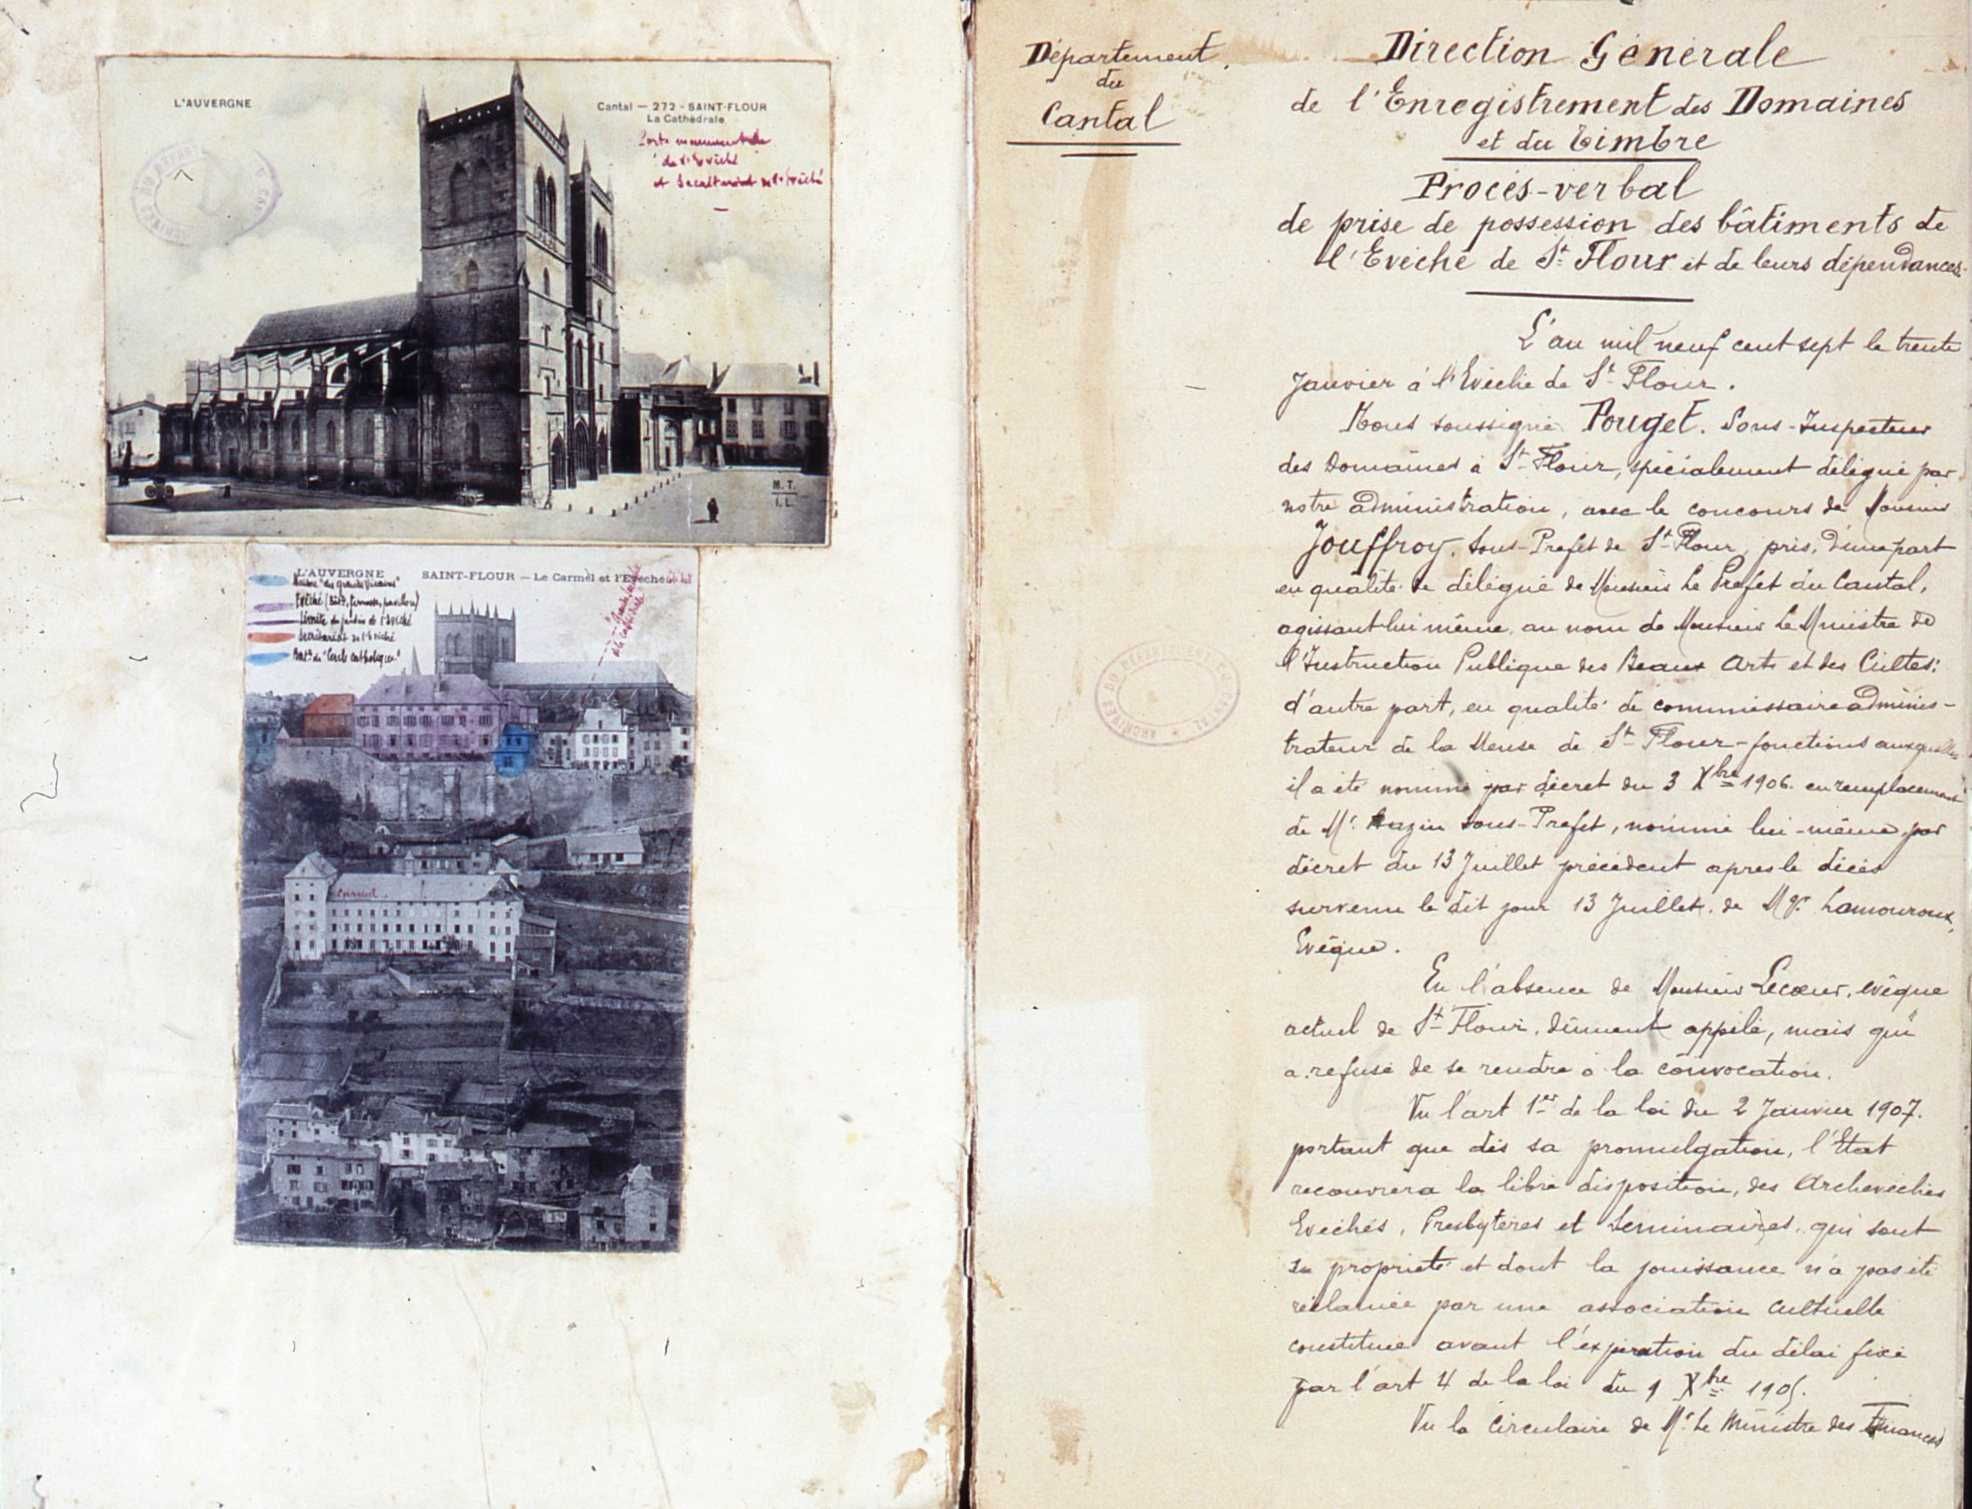 L'AUVERGNE
Cantal — 272 - SAINT-FLOUR
La Cathédrale
Porte monumentale
de l'Evêché
et Secrétariat de l'Evêché
M. T.
I. L.
L'AUVERGNE
SAINT-FLOUR — Le Carmel et l'Evêché
Maison "des grands Vicaires"
Evêché (Bâts, terrasse, pavillon)
Limite du jardin de l'Evêché
Secrétariat de l'Evêché
Batts du "Cercle catholique"
Carmel
Département
du
Cantal
ARCHIVES DU DÉPARTEMENT DU CANTAL
Direction Générale
de l'Enregistrement des Domaines
et du Timbre
Procès-verbal
de prise de possession des bâtiments de
l'Evêché de St Flour et de leurs dépendances.
L'an mil neuf cent sept le trente
Janvier à l'Evêché de St Flour.
Nous soussigné Pouget. Sous-Inspecteur
des Domaines à St Flour, spécialement délégué par
notre administration, avec le concours de Monsieur
Jouffroy, Sous-Préfet de St Flour, pris, d'une part
en qualité de délégué de Monsieur Le Préfet du Cantal,
agissant lui même au nom de Monsieur Le Ministre de
l'Instruction Publique des Beaux Arts et des Cultes;
d'autre part, en qualité de commissaire adminis-
trateur de la Mense de St Flour - fonctions auxquelles
il a été nommé par décret du 3 Xbre 1906. en remplacement
de Mr. Sous-Préfet, nommé lui-même, par
décret du 13 Juillet précédent après le décès
survenu le dit jour 13 Juillet, de Mgr Lamouroux,
Evêque.
En l'absence de Monsieur Lecœur, évêque
actuel de St Flour, dûment appelé, mais qui
a refusé de se rendre à la convocation.
Vu l'art 1er de la loi du 2 Janvier 1907.
portant que dès sa promulgation, l'Etat
recouvrera la libre disposition, des Archevêchés
Evêchés, Presbytères et Séminaires, qui sont
sa propriété et dont la jouissance n'a pas été
réclamée par une association cultuelle
constituée avant l'expiration du délai fixé
par l'art 4 de la loi du 9 Xbre 1905.
Vu la circulaire de Mr Le Ministre des Finances